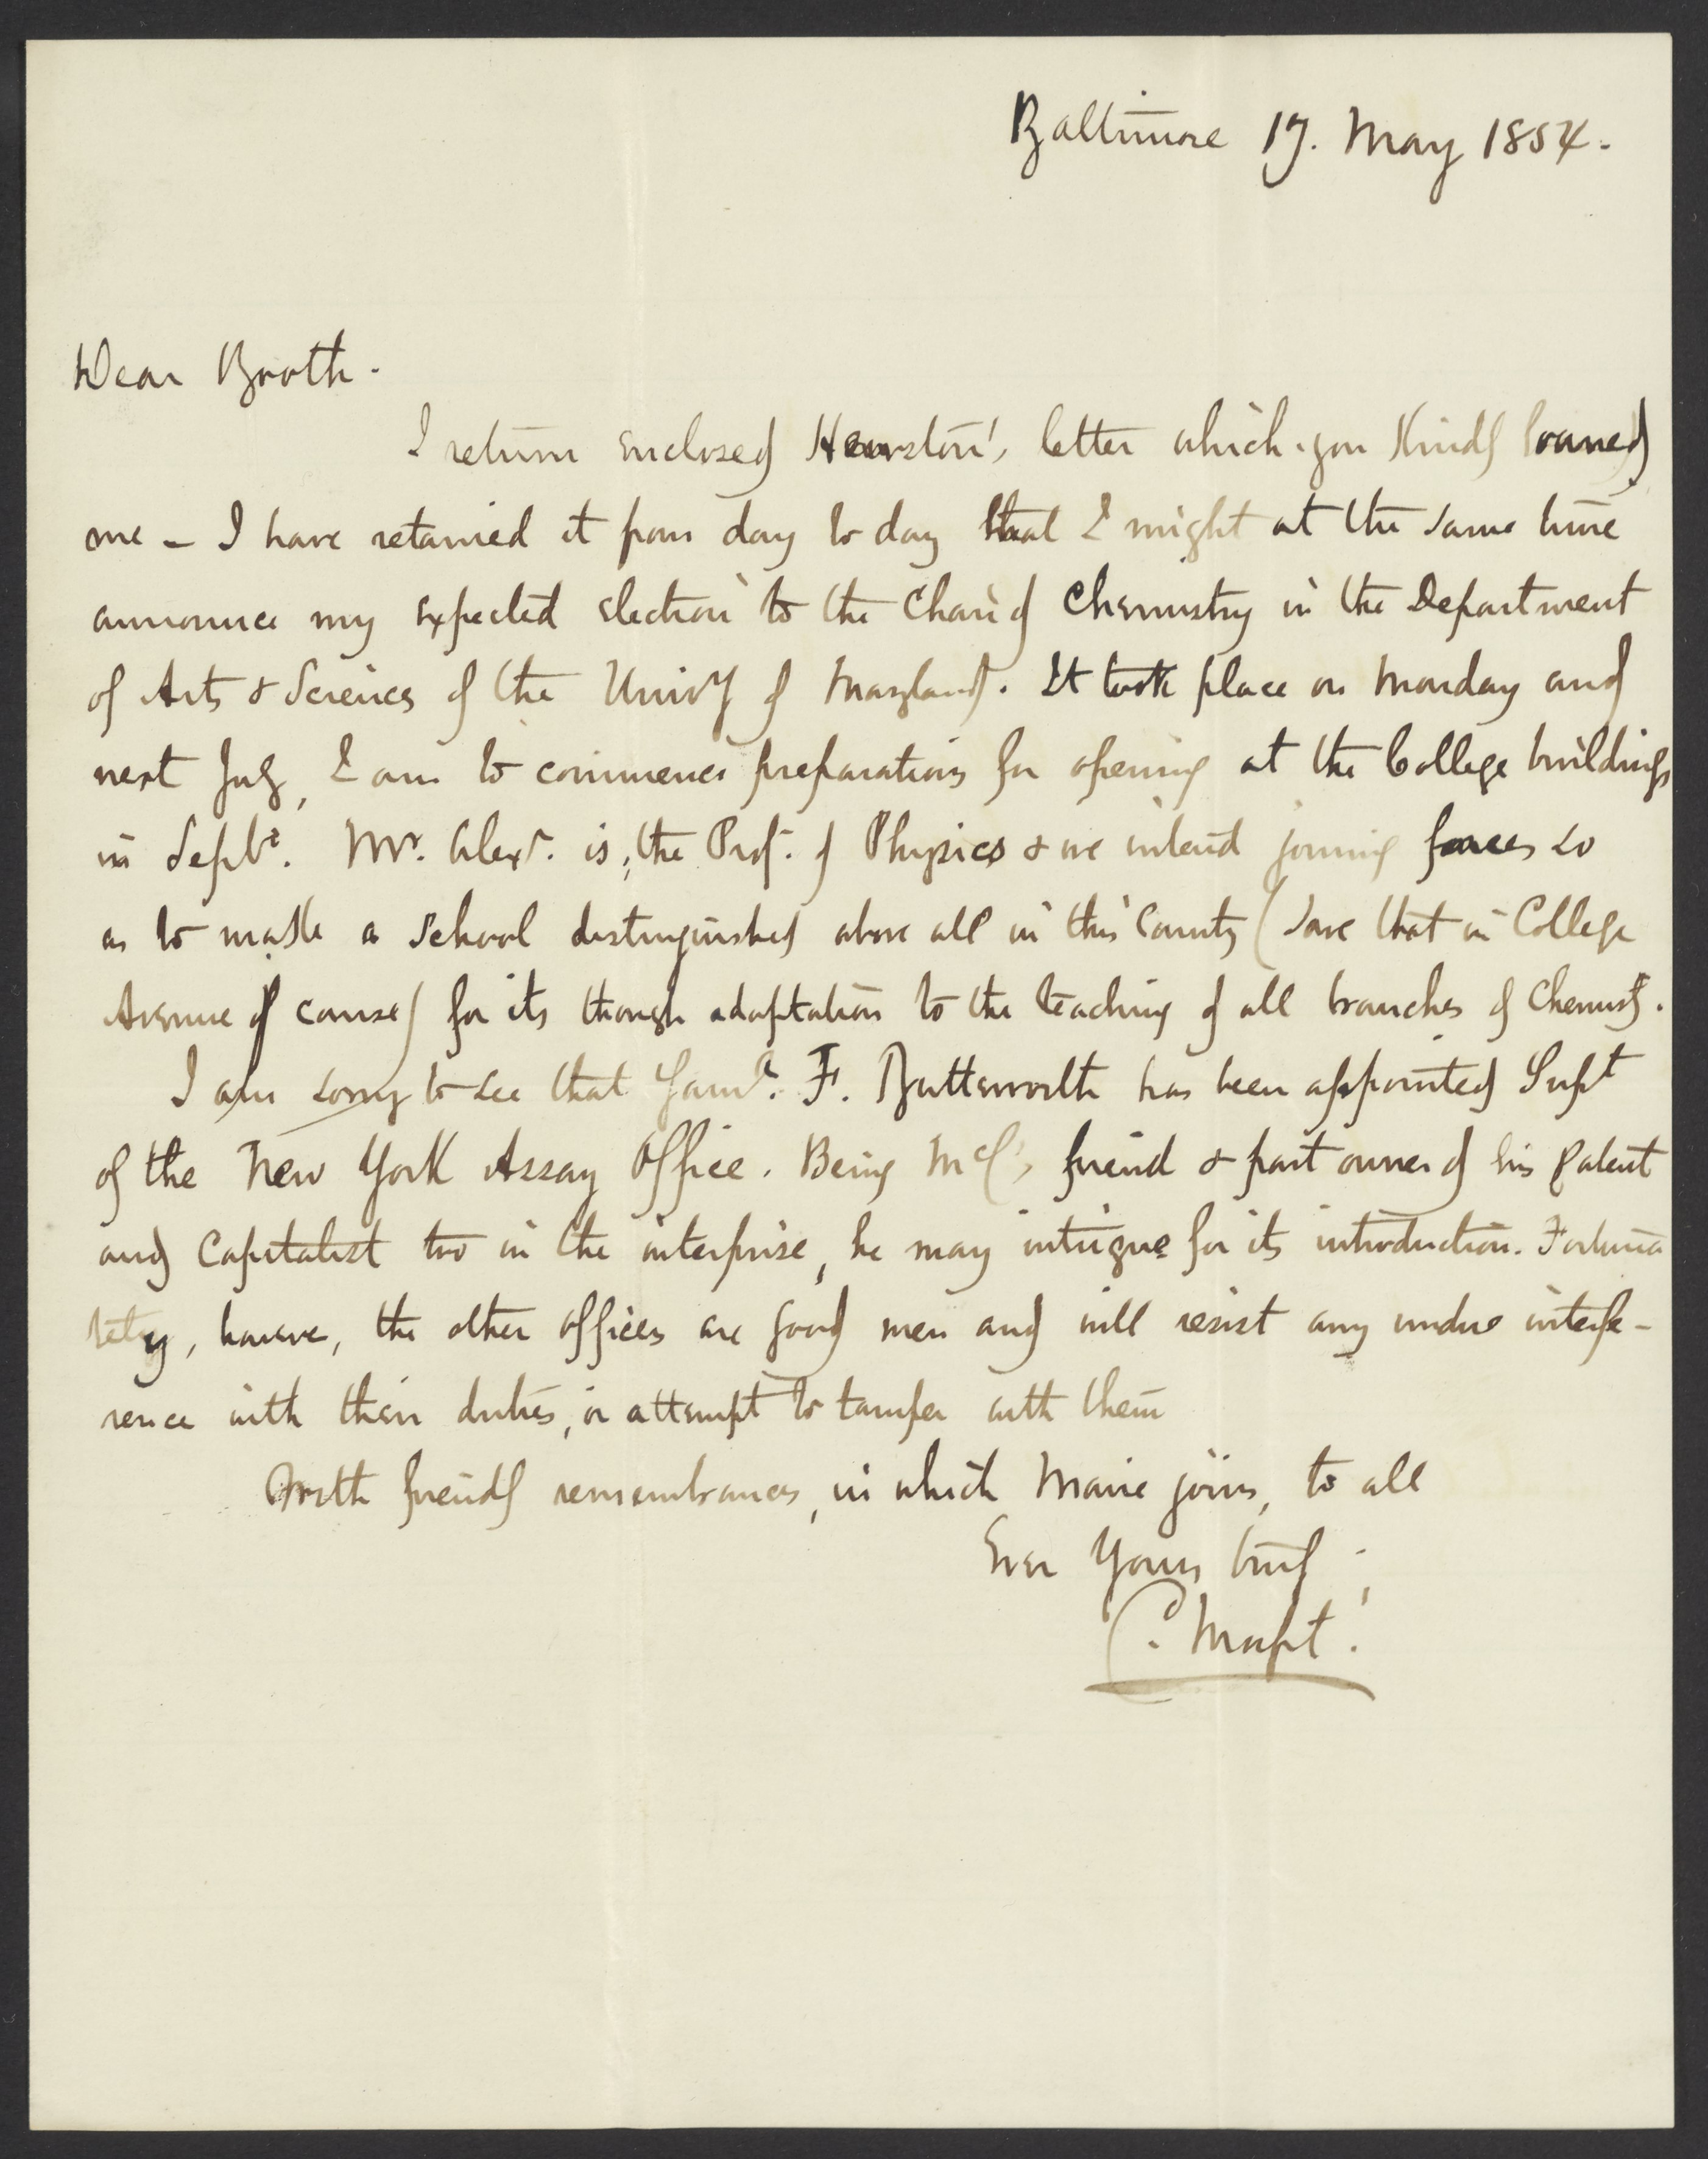 Baltimore 17. May 1854.
Dear Booth.
I return enclosed Hewston's letter which you kindly loaned
me – I have retained it from day to day that I might at the same time
announce my expected election to the Chair of Chemistry in the Department
of Arts & Sciences of the Univy of Maryland. It took place on Monday and
next July, I am to commence preparations for opening at the College buildings
in Septbr. Mr. Alexr. is the Prof. of Physics & we intend joining forces so
as to make a School distinguished above all in this County (save that in College
Avenue of course) for its thorough adaptation to the teaching of all branches of Chemistry.
I am sorry to see that Saml. F. Butterworth has been appointed Supt
of the New York Assay Office. Being McC's friend & part owner of his patent
and Capitalist too in the interprise, he may intrigue for its introduction. Fortuna
tely, however, the other officers are good men and will resist any undue interfe-
rence with their duties, or attempt to tamper with them
With friendly remembrances, in which Marie joins, to all
Ever Yours truly,
C. Morfit.